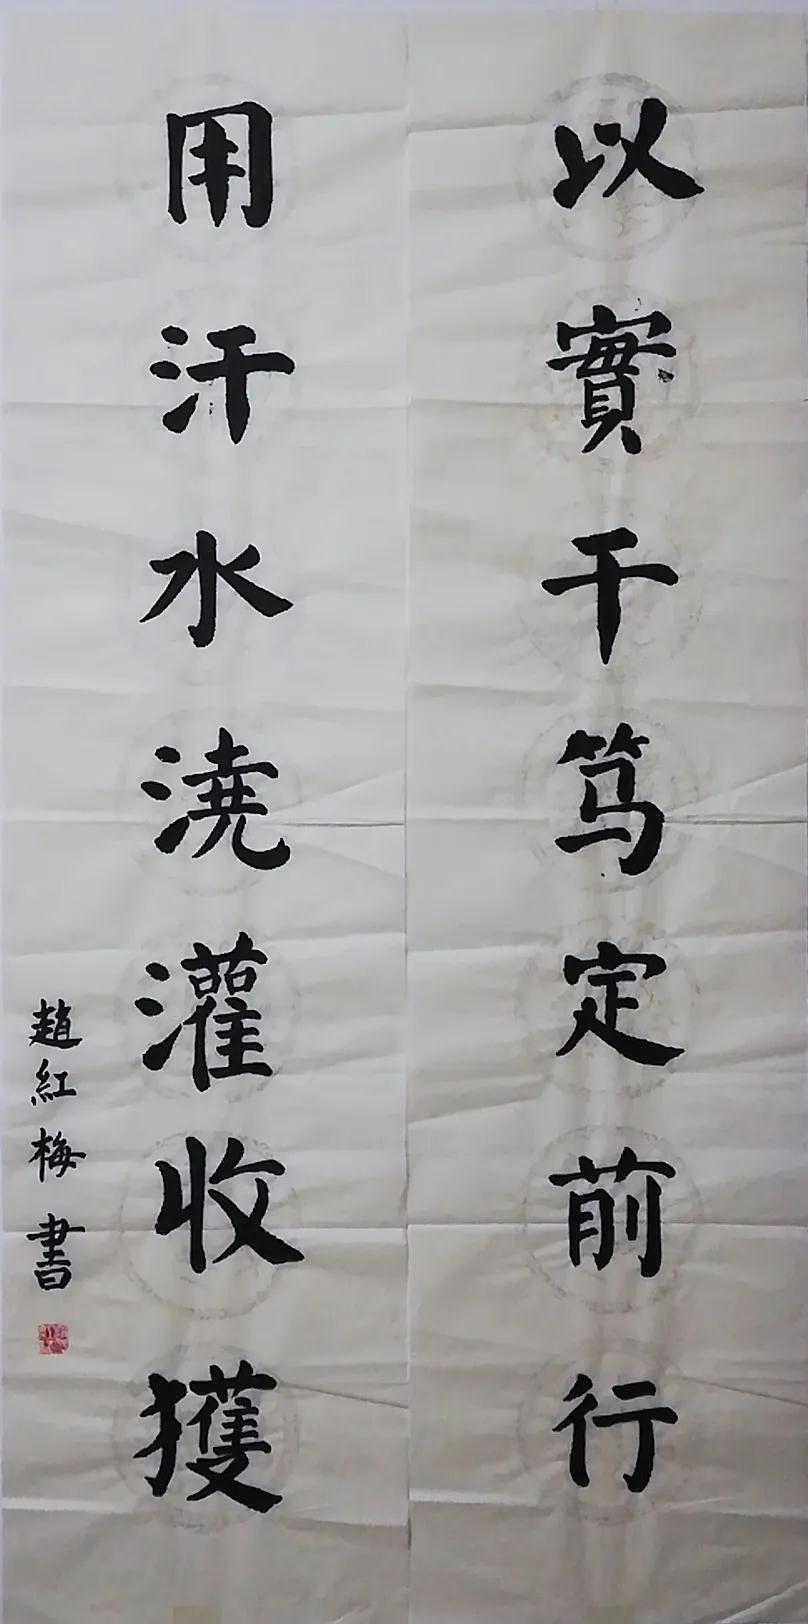 以實干笃定前行
用汗水澆灌收獲
趙紅梅書